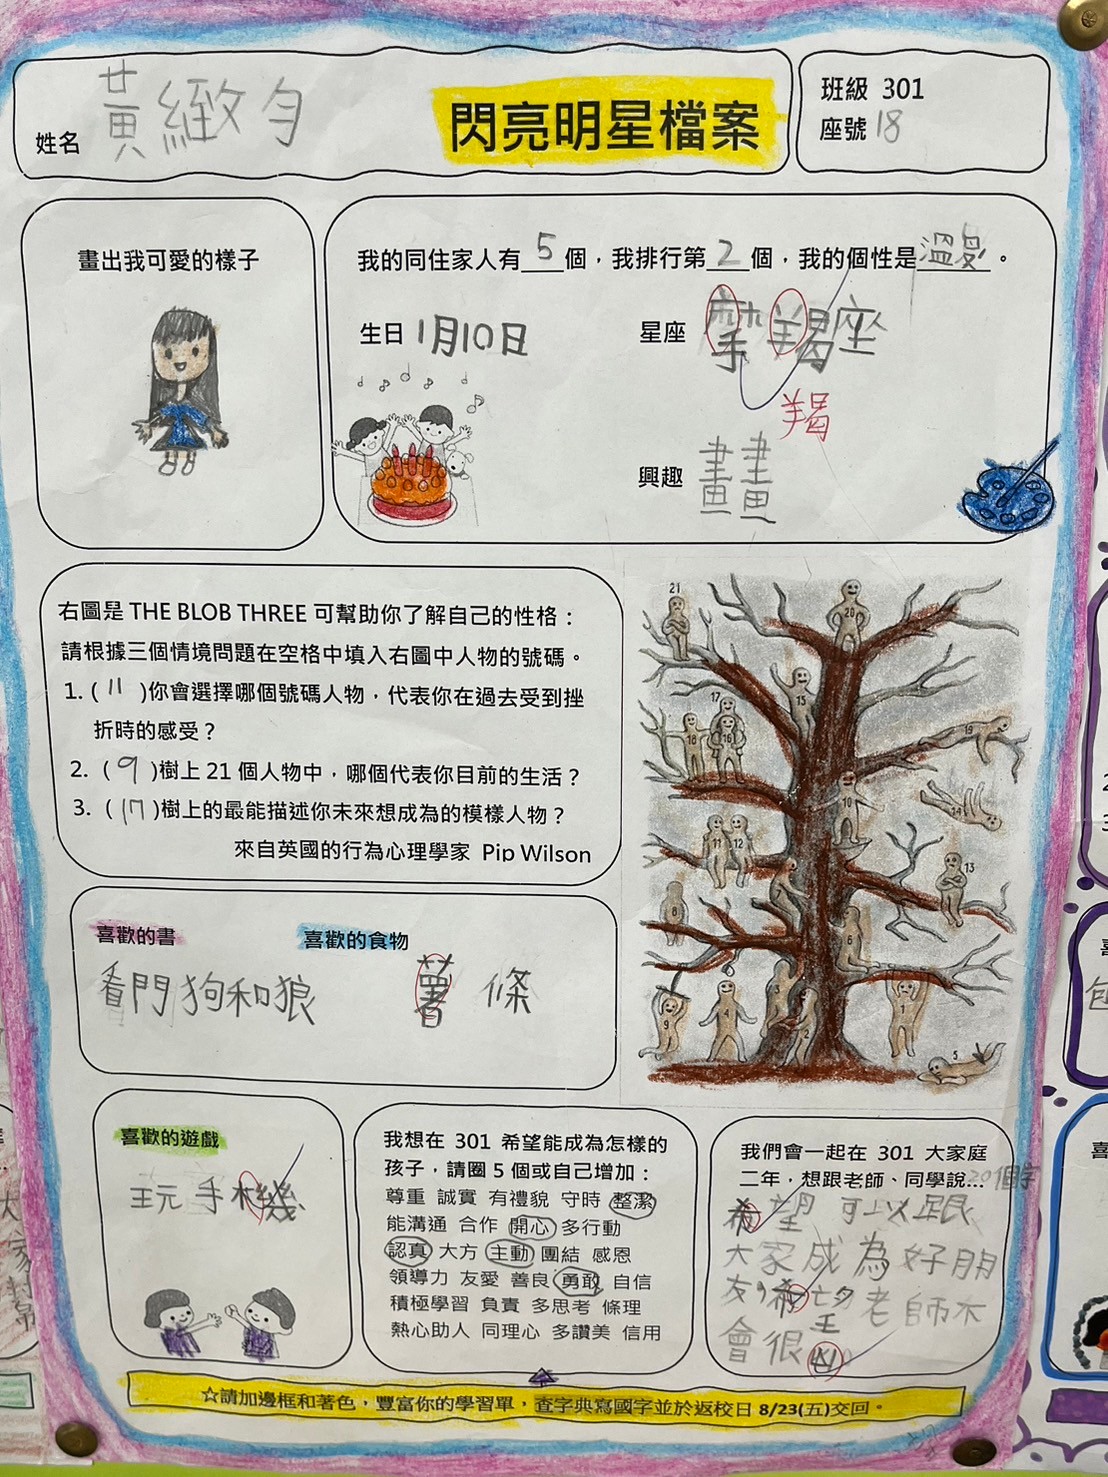 姓名 黃緻勻
閃亮明星檔案
班級 301
座號 18
畫出我可愛的樣子
我的同住家人有 5 個，我排行第 2 個，我的個性是 溫
生日 1月10日
星座 摩羯座
羯
興趣 畫畫
右圖是 THE BLOB THREE 可幫助你了解自己的性格：
請根據三個情境問題在空格中填入右圖中人物的號碼。
1. ( 11 )你會選擇哪個號碼人物，代表你在過去受到挫
折時的感受？
2. ( 9 )樹上 21 個人物中，哪個代表你目前的生活？
3. ( 17 )樹上的最能描述你未來想成為的模樣人物？
來自英國的行為心理學家 Pip Wilson
21
20
17
15
18
16
19
10
14
11 12
13
8
6
9
4
3
2
1
5
喜歡的書
看門狗和狼
喜歡的食物
薯條
喜歡的遊戲
玩手機
我想在 301 希望能成為怎樣的
孩子，請圈 5 個或自己增加：
尊重 誠實 有禮貌 守時 整潔
能溝通 合作 開心 多行動
認真 大方 主動 團結 感恩
領導力 友愛 善良 勇敢 自信
積極學習 負責 多思考 條理
熱心助人 同理心 多讚美 信用
我們會一起在 301 大家庭
二年，想跟老師、同學說...20個字
希望可以跟
大家成為好朋
友，希望老師不
會很凶。
☆請加邊框和著色，豐富你的學習單，查字典寫國字並於返校日 8/23(五)交回。